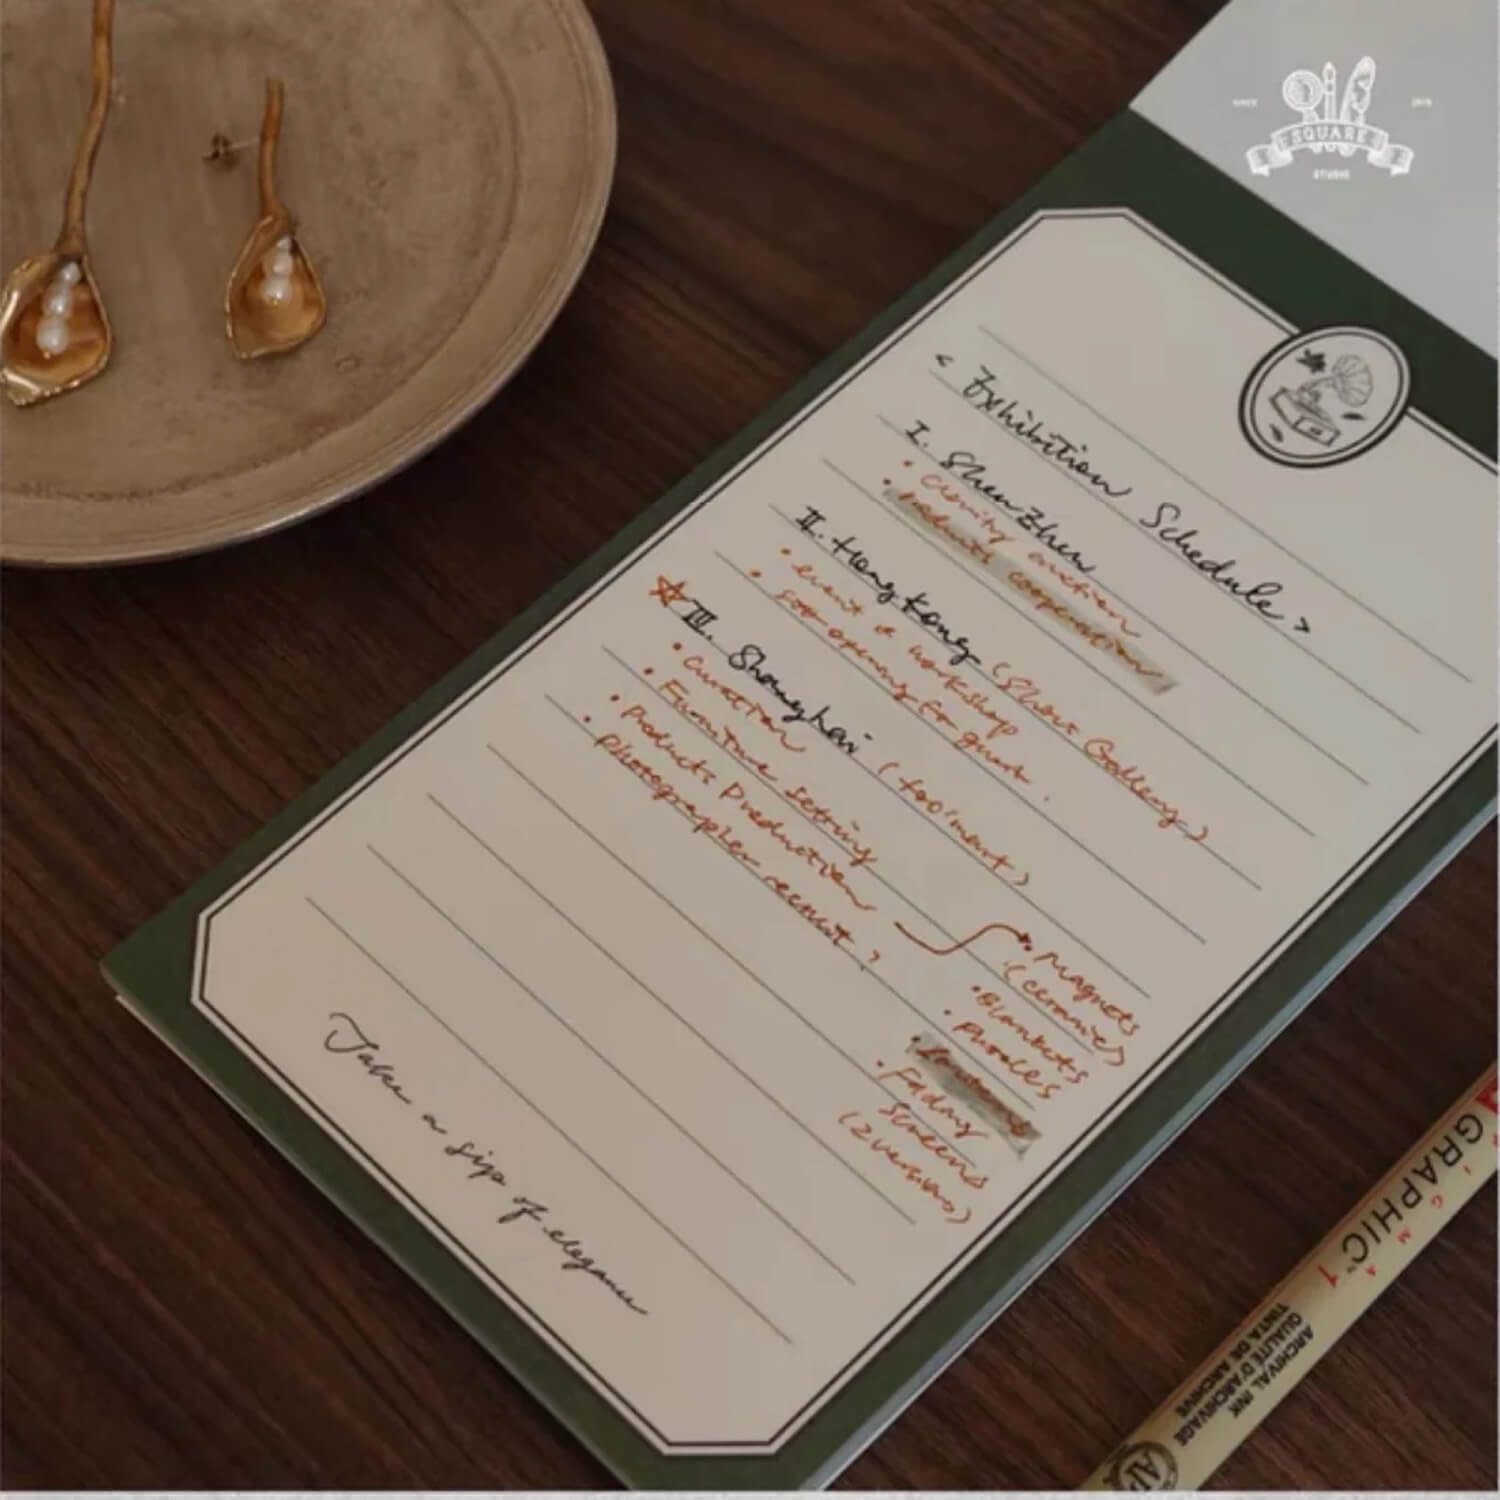 SINCE 2013
SQUARE
STUDIO
< Exhibition Schedule >
I. ShenZhen
• Charity auction
• Products cooperation
II. Hong Kong (Shout Gallery)
• event & workshop
• opening for guest.
☆ III. Shanghai (too'mart)
• Curation
• Furniture Setting
• Products Production
• Photographer recruit?
• Magnets
(ceramics)
• Blankets
• Phoches
• Folding
Screens
(2 versions)
Take a sip of elegance
GRAPHIC™ 1
ARCHIVAL INK
QUALITÉ D'ARCHIVAGE
TINTA DE ARCHIVE
AP